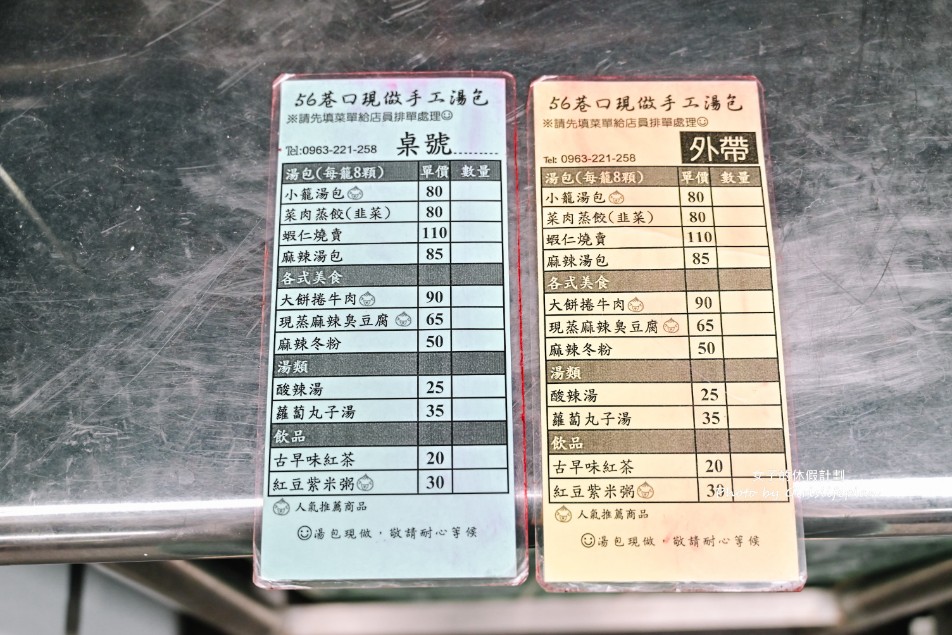 56巷口現做手工湯包
※請先填菜單給店員排單處理
Tel:0963-221-258 桌號
湯包(每籠8顆) 單價 數量
小籠湯包 80
菜肉蒸餃(韭菜) 80
蝦仁燒賣 110
麻辣湯包 85
各式美食
大餅捲牛肉 90
現蒸麻辣臭豆腐 65
麻辣冬粉 50
湯類
酸辣湯 25
蘿蔔丸子湯 35
飲品
古早味紅茶 20
紅豆紫米粥 30
人氣推薦商品
湯包現做，敬請耐心等候
56巷口現做手工湯包
※請先填菜單給店員排單處理
Tel: 0963-221-258 外帶
湯包(每籠8顆) 單價 數量
小籠湯包 80
菜肉蒸餃(韭菜) 80
蝦仁燒賣 110
麻辣湯包 85
各式美食
大餅捲牛肉 90
現蒸麻辣臭豆腐 65
麻辣冬粉 50
湯類
酸辣湯 25
蘿蔔丸子湯 35
飲品
古早味紅茶 20
紅豆紫米粥 30
人氣推薦商品
湯包現做，敬請耐心等候
的休假計劃